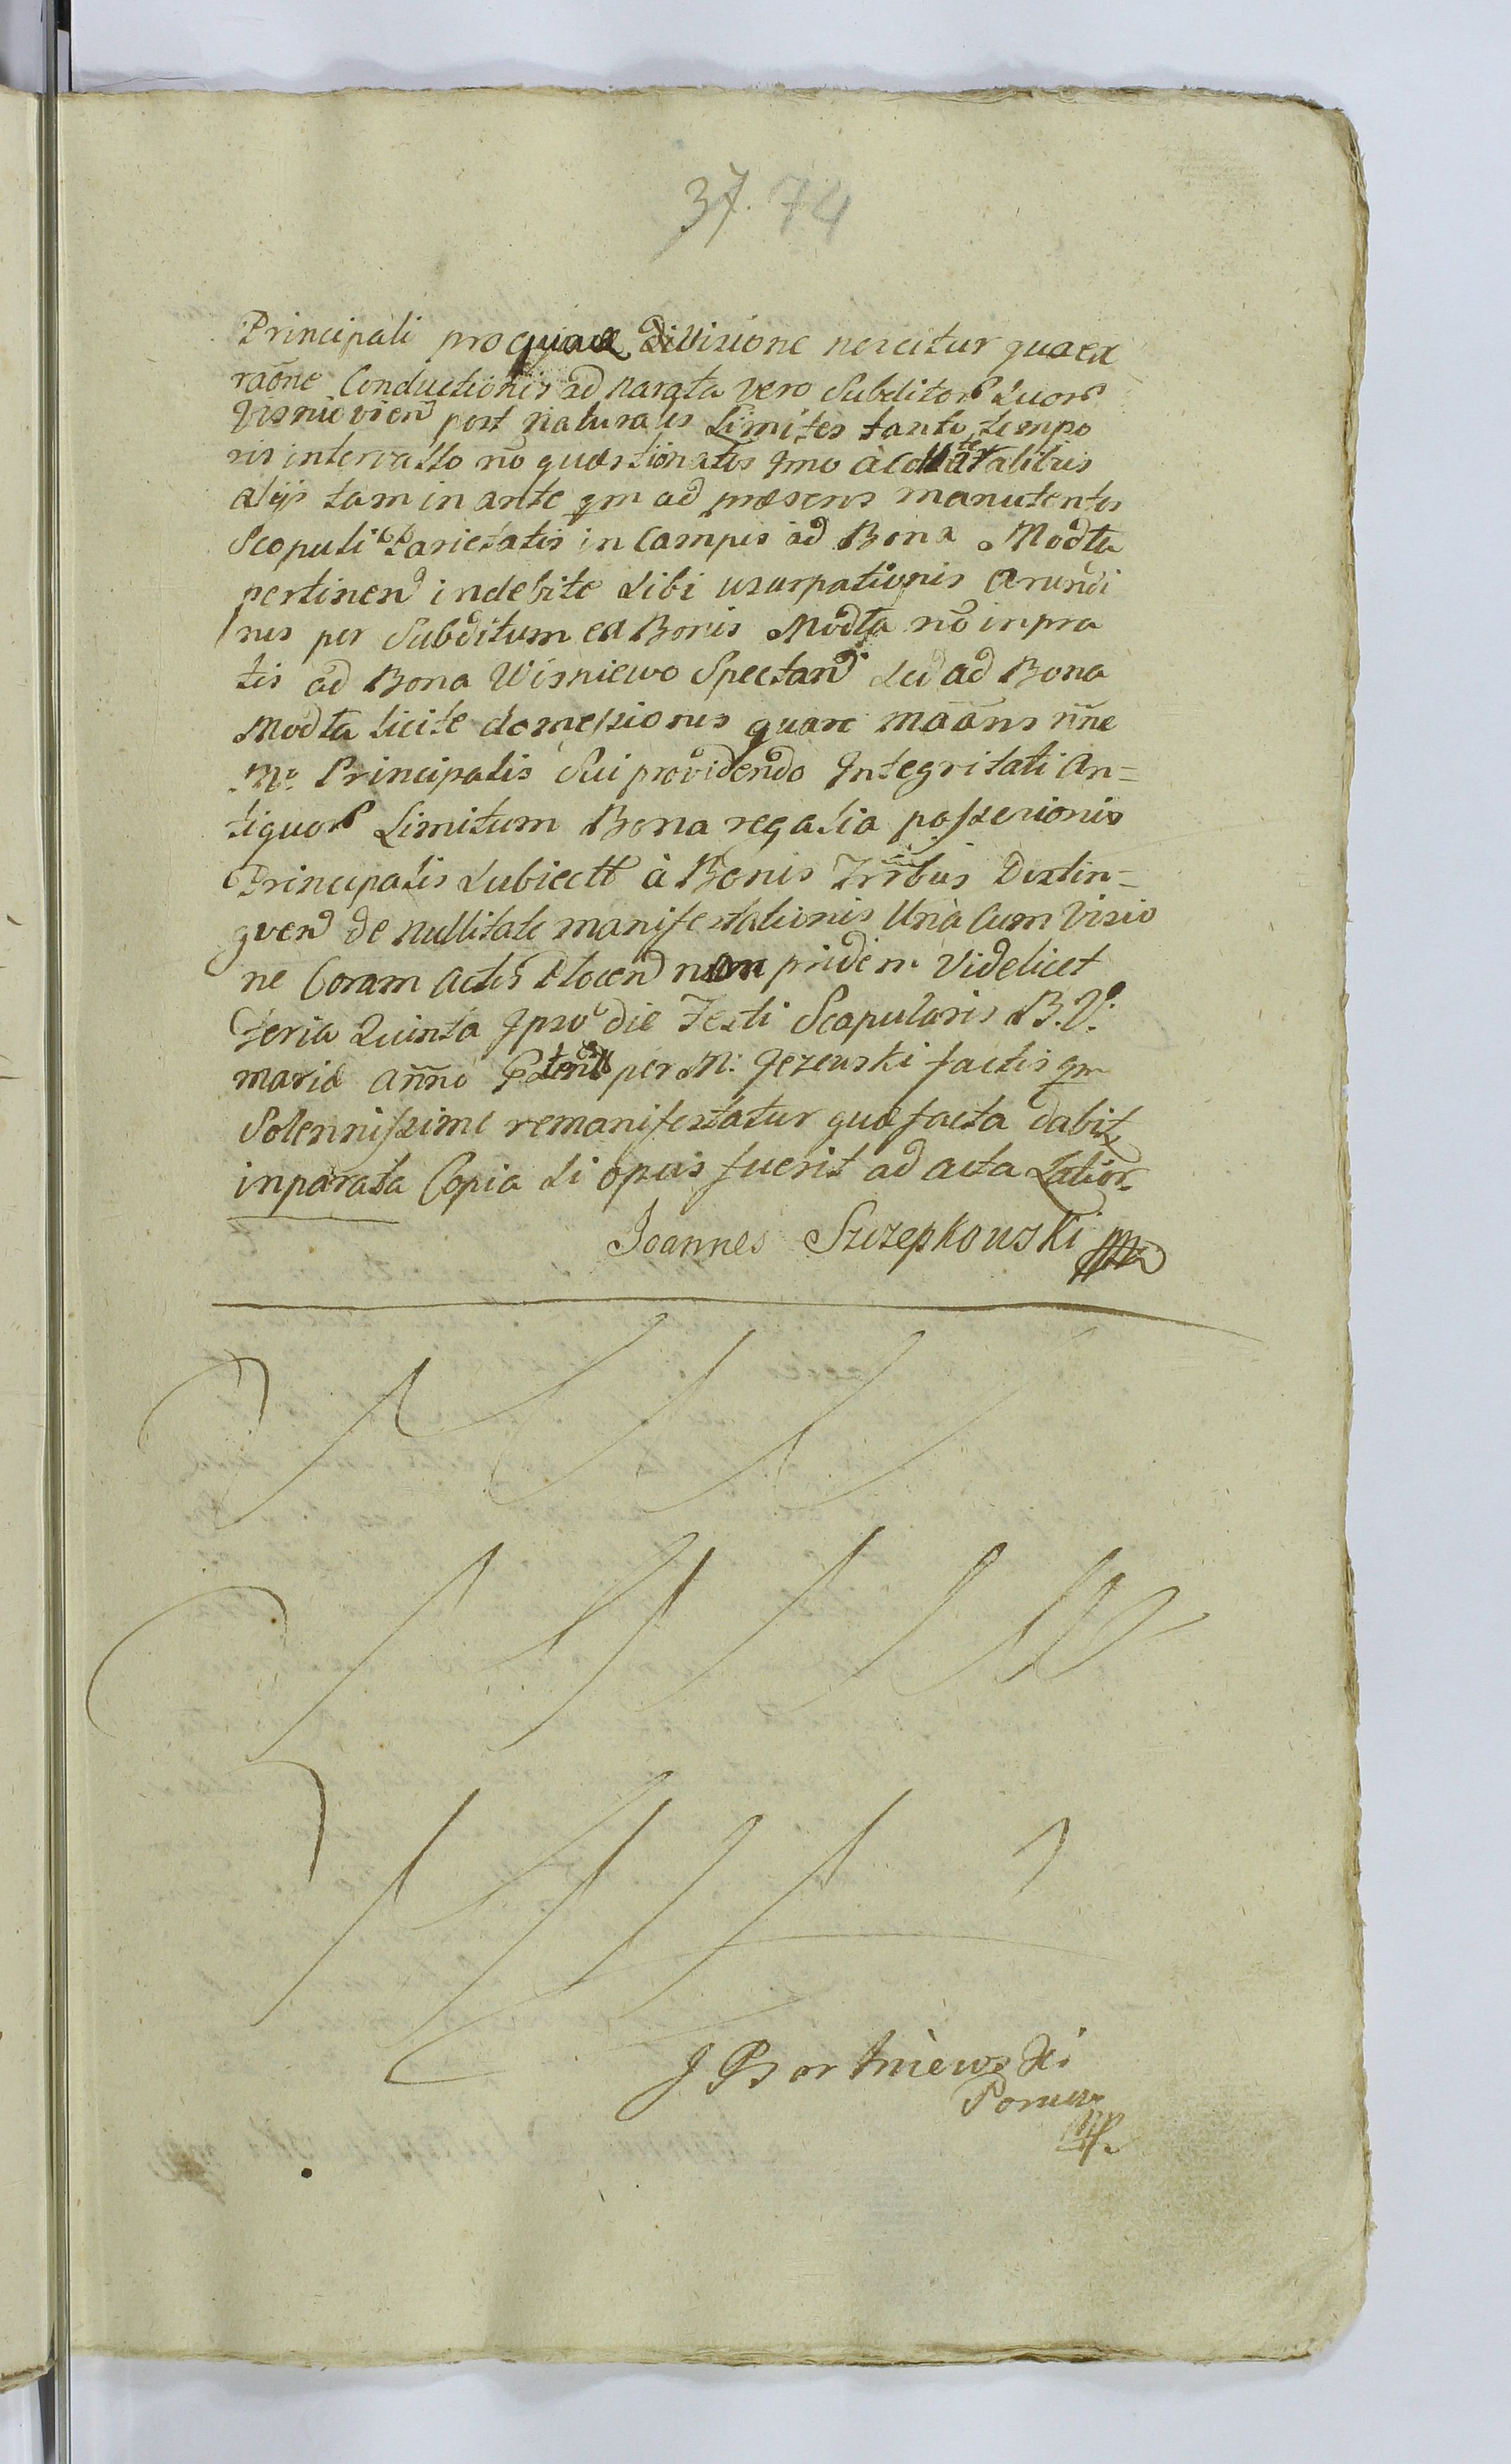 37. 74
Principali pro quali divisione nescitur qua ex
raõne Conductionis ad narata vero Subditor Suor
Visnievien post naturales Limites tanto tempo
ris intervallo nõ quæstionatos Imo à Collateralibus
alijs tam in ante qm ad præsens manutentos
Scopuli Parietatis in Campis ad Bona Modła
pertinen indebite Sibi usurpationis Arundi
nis per Subditum ex Bonis Modła nõ in pra
tis ad Bona Wisniewo Spectan Sed ad Bona
Modła licite domessionis quare maãns nñe
M: Principalis Sui providendo Integritati An=
tiquor Limitum Bona regalia possesionis
Principalis Subiectt à Bonis Trribus Distin=
guen de nullitate manifestationis Unà Cum Visio
ne Coram Actis docen non pridem Videlicet
Feria Quinta Ipso die Festi Scapularis B. V.
mariæ añno per M: Jezewski factis qm
Solennissime remanifestatur quæ facta dabit
inparata Copia Si opus fuerit ad acta Latior
Joannes Szczepkowski mp
J Bortniewski
mp.